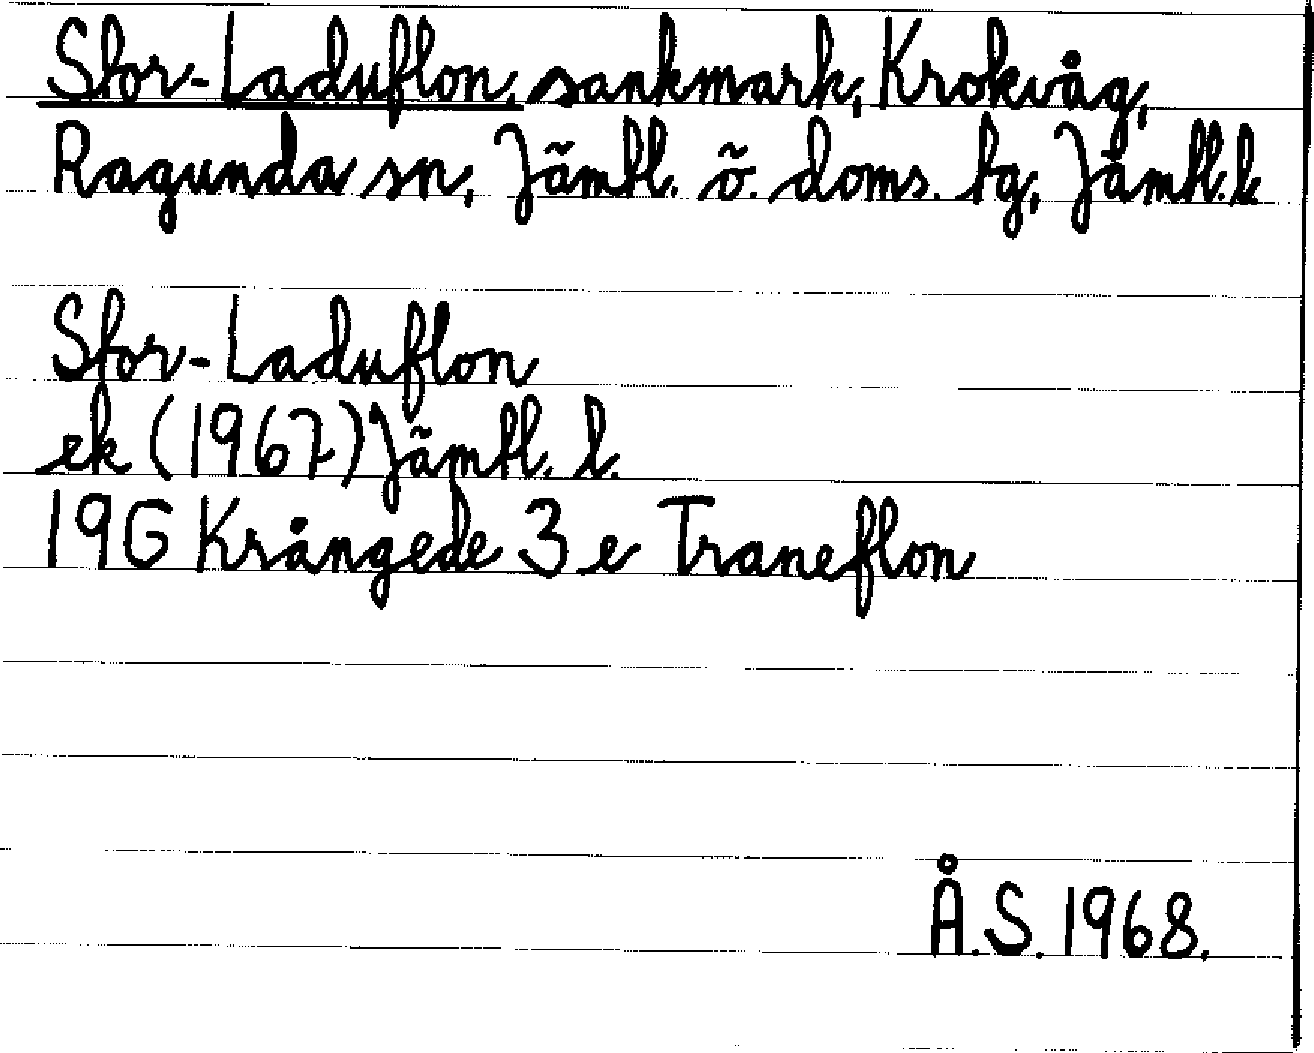 Stor-Laduflon, sankmark, Krokvåg,
Ragunda sn, Jämtl. ö. doms. tg, Jämtl. l
Stor-Laduflon
ek (1967) Jämtl. l.
19G Krångede 3 e Traneflon
Å.S. 1968.